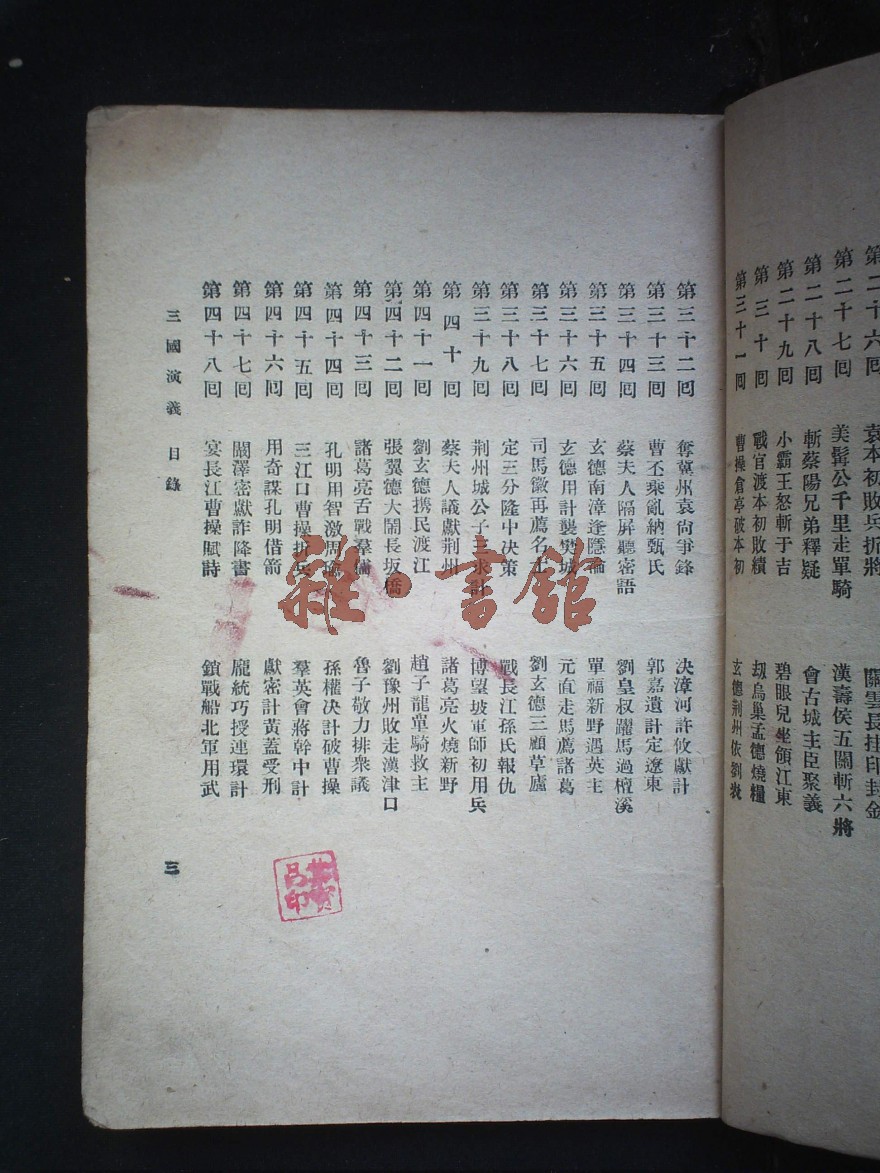 第二十六回 袁本初敗兵折將 關雲長挂印封金
第二十七回 美髯公千里走單騎 漢壽侯五關斬六將
第二十八回 斬蔡陽兄弟釋疑 會古城主臣聚義
第二十九回 小霸王怒斬于吉 碧眼兒坐領江東
第三十回 戰官渡本初敗績 刧烏巢孟德燒糧
第三十一回 曹操倉亭破本初 玄德荆州依劉表
第三十二回 奪冀州袁尚爭鋒 決漳河許攸獻計
第三十三回 曹丕乘亂納甄氏 郭嘉遺計定遼東
第三十四回 蔡夫人隔屏聽密語 劉皇叔躍馬過檀溪
第三十五回 玄德南漳逢隱淪 單福新野遇英主
第三十六回 玄德用計襲樊城 元直走馬薦諸葛
第三十七回 司馬徽再薦名士 劉玄德三顧草廬
第三十八回 定三分隆中決策 戰長江孫氏報仇
第三十九回 荆州城公子三求計 博望坡軍師初用兵
第四十回 蔡夫人議獻荆州 諸葛亮火燒新野
第四十一回 劉玄德携民渡江 趙子龍單騎救主
第四十二回 張翼德大鬧長坂橋 劉豫州敗走漢津口
第四十三回 諸葛亮舌戰羣儒 魯子敬力排衆議
第四十四回 孔明用智激周瑜 孫權決計破曹操
第四十五回 三江口曹操折兵 羣英會蔣幹中計
第四十六回 用奇謀孔明借箭 獻密計黃蓋受刑
第四十七回 闞澤密獻詐降書 龐統巧授連環計
第四十八回 宴長江曹操賦詩 鎖戰船北軍用武
三國演義 目錄
三
雜·書館